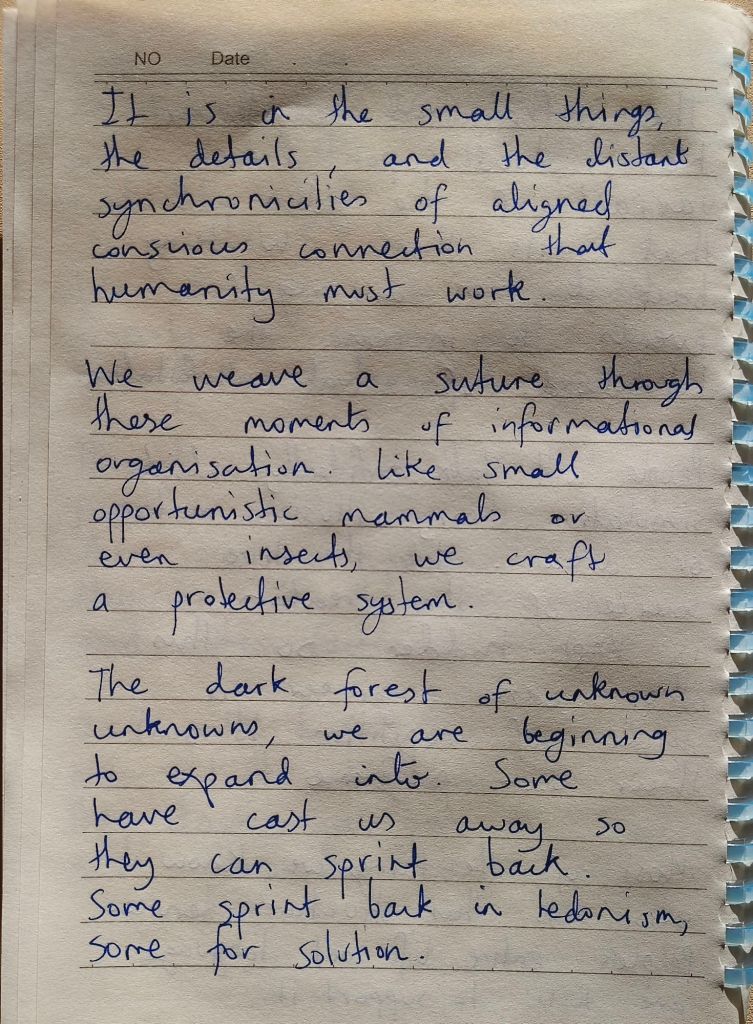 NO Date
It is in the small things,
the details, and the distant
synchronicities of aligned
conscious connection that
humanity must work.
We weave a suture through
these moments of informational
organisation. Like small
opportunistic mammals or
even insects, we craft
a protective system.
The dark forest of unknown
unknowns, we are beginning
to expand into. Some
have cast us away so
they can sprint back.
Some sprint back in hedonism,
some for solution.